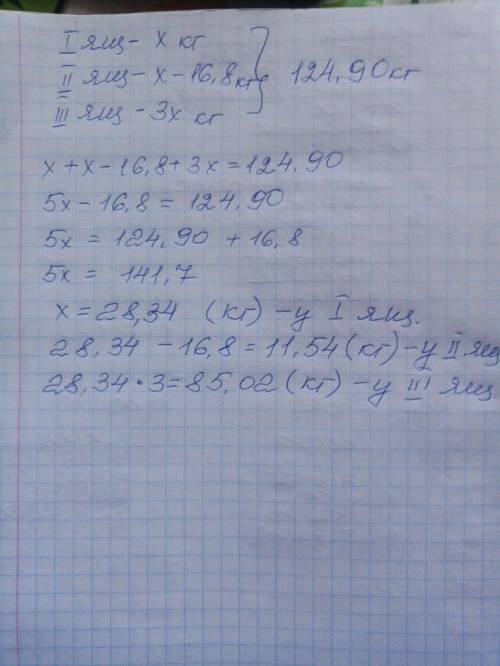 I ящ - х кг
II ящ - х - 16,8 кг } 124,90 кг
III ящ - 3х кг
х + х - 16,8 + 3х = 124,90
5х - 16,8 = 124,90
5х = 124,90 + 16,8
5х = 141,7
х = 28,34 (кг) - у I ящ.
28,34 - 16,8 = 11,54 (кг) - у II ящ
28,34 · 3 = 85,02 (кг) - у III ящ